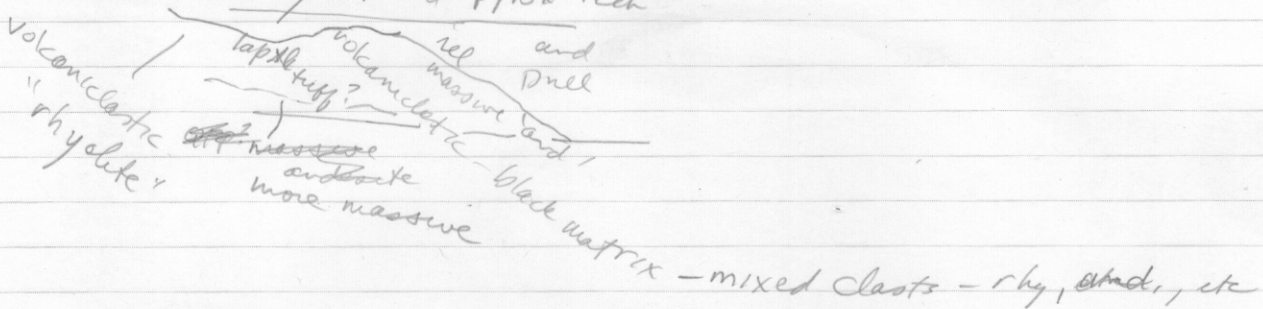 volcaniclastic
"rhyolite"
lap
tuff?
massive
andesite
more massive
volcaniclastic - black matrix - mixed clasts - rhy, and., etc
rel massive and,
and